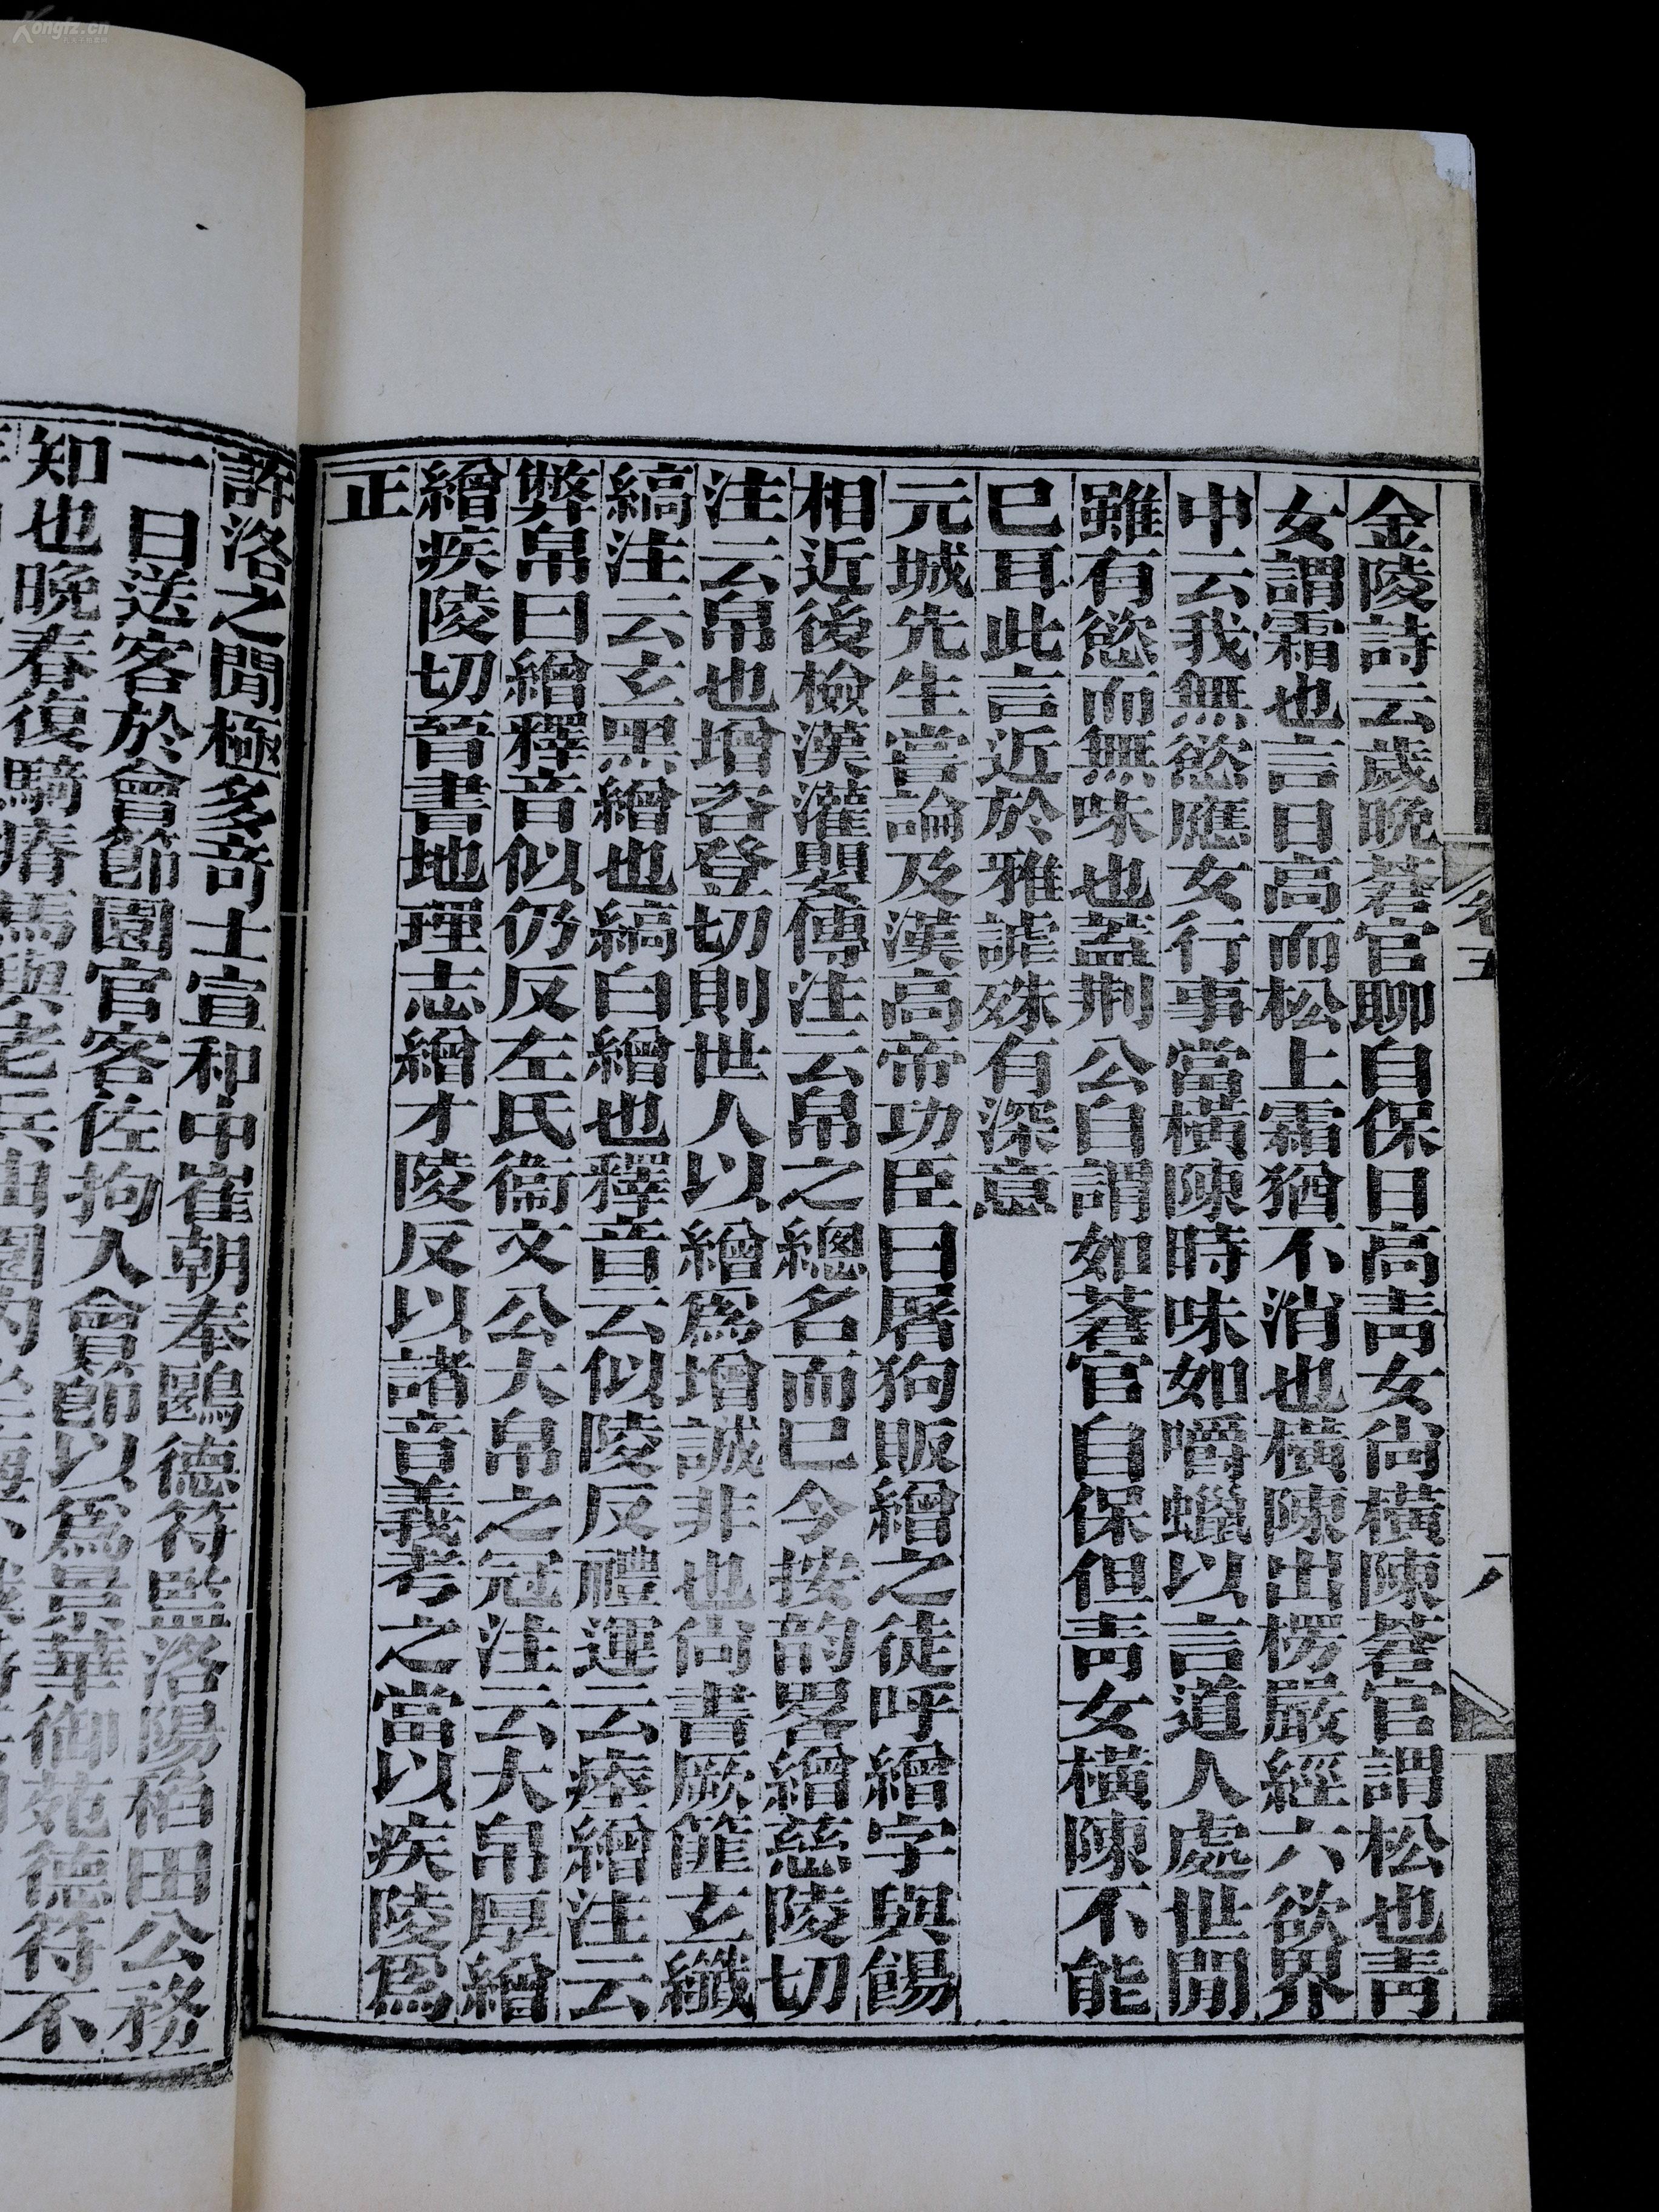 金陵詩云歲晚蒼官聊自保日高靑女尙橫陳蒼官謂松也靑
女謂霜也言日高而松上霜猶不消也橫陳出楞嚴經六欲界
中云我無慾應女行事當橫陳時味如嚼蠟以言道人處世閒
雖有慾而無味也蓋荆公自謂如蒼官自保但靑女橫陳不能
已耳此言近於雅謔殊有深意
元城先生嘗論及漢高帝功臣曰屠狗販繒之徒呼繒字與餳
相近後檢漢灌嬰傳注云帛之總名而已今按韵畧繒慈陵切
注云帛也增咨登切則世人以繒爲增誠非也尙書厥篚玄纖
縞注云玄黑繒也縞白繒也釋音云似陵反禮運云瘞繒注云
幣帛曰繒釋音似仍反左氏衞文公大帛之冠注云大帛厚繒
繒疾陵切晉書地理志繒才陵反以諸音義考之當以疾陵爲
正
卷五
八
許洛之閒極多奇士宣和中崔朝奉鷗德符監洛陽稻田公務
一日送客於會節園官客佐拘入會節以爲景華御苑德符不
知也晚春復騎瘠馬與老兵
Kongfz.cn